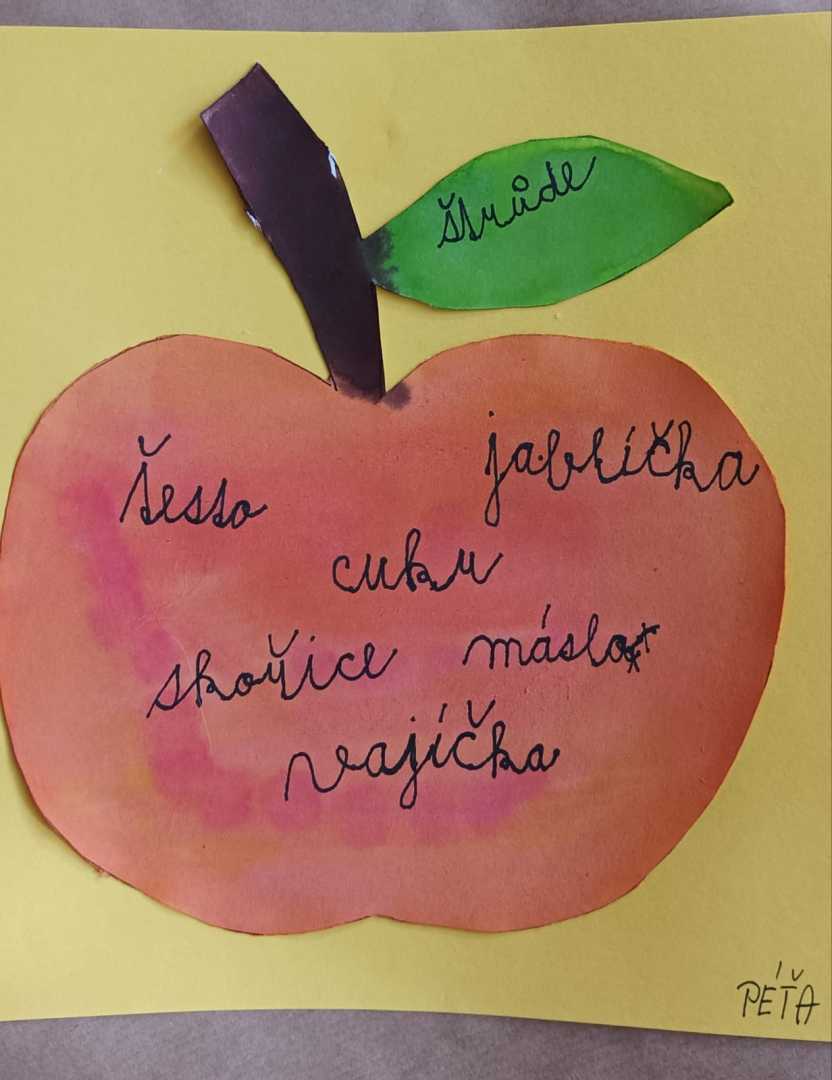 štrůdl
ťesto jablíčka
cukr
skořice máslo
vajíčka
PÉŤA